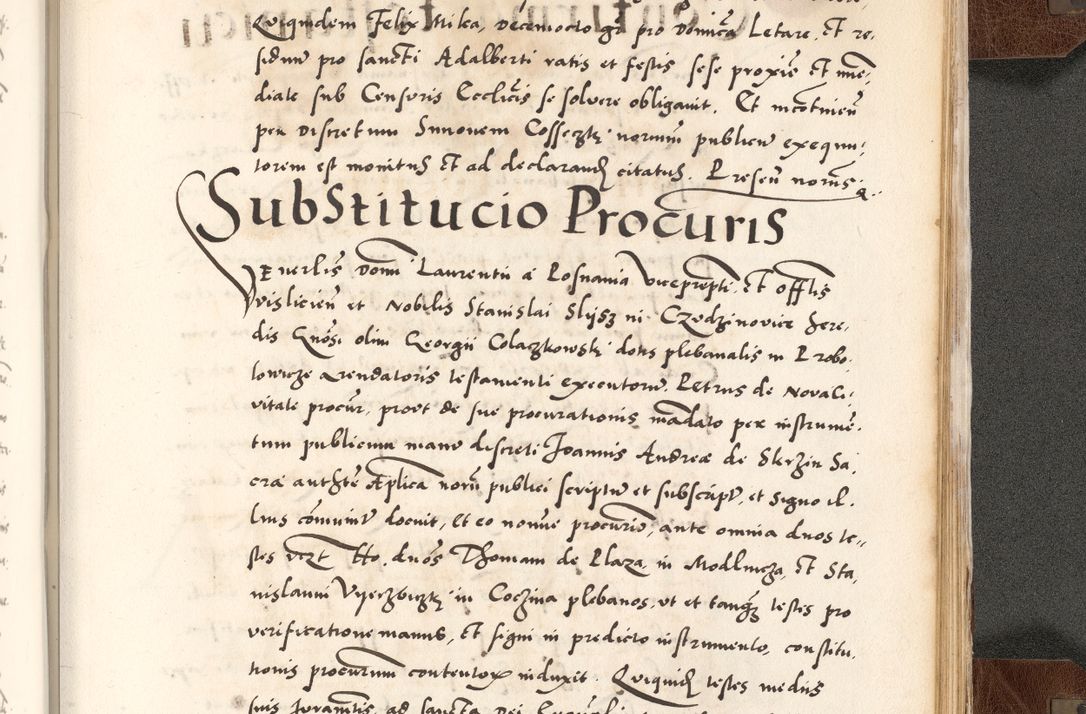 Quiquidem Felix Mika, decemocto gr pro Dominica Letare, Et re,
siduu pro sancti Adalberti ratis et festis sese proxie Et ime,
diate sub Censuris Ecclicis se solvere obligauit. Et incotinen
per Discretum Simonem Cossezki norium publicu exequu,
torem est monitus Et ad declarand citatus. Presen norius
Substitucio Procuris
Venerlis Domi Laurentii a Posnania viceprepti Et offlis
vislicien et Nobilis Stanislai Slyisz ni Czudzinovice Here,
dis Gnosi olim Georgii Colaczkowski dotis plebanalis in Probo,
lowicze Arendatoris testamenti executoru. Petrus de Nova Ci,
vitate procur, prout de sue procurationis mandato per instrume,
tum publicum manu discreti Joannis Andreæ de Skrzin Sa,
cra authte Aplica noru publici scriptu et subscript, et Signo il,
lius comunit docuit, Et eo nomine procurio, ante omnia duos te,,
stes vizt Ho. duos Thomam de Plaza in Modlnicza, Et Sta,
nislaum Vyeczviczki in Coczina plebanos, ut et tanq testes pro
verificatione manus, Et signi in predicto instrumento, constitu,
tionis procurium contentox induxit. Quiquid testes mediis
suis Juramtis, ad sancta Dei Euanli